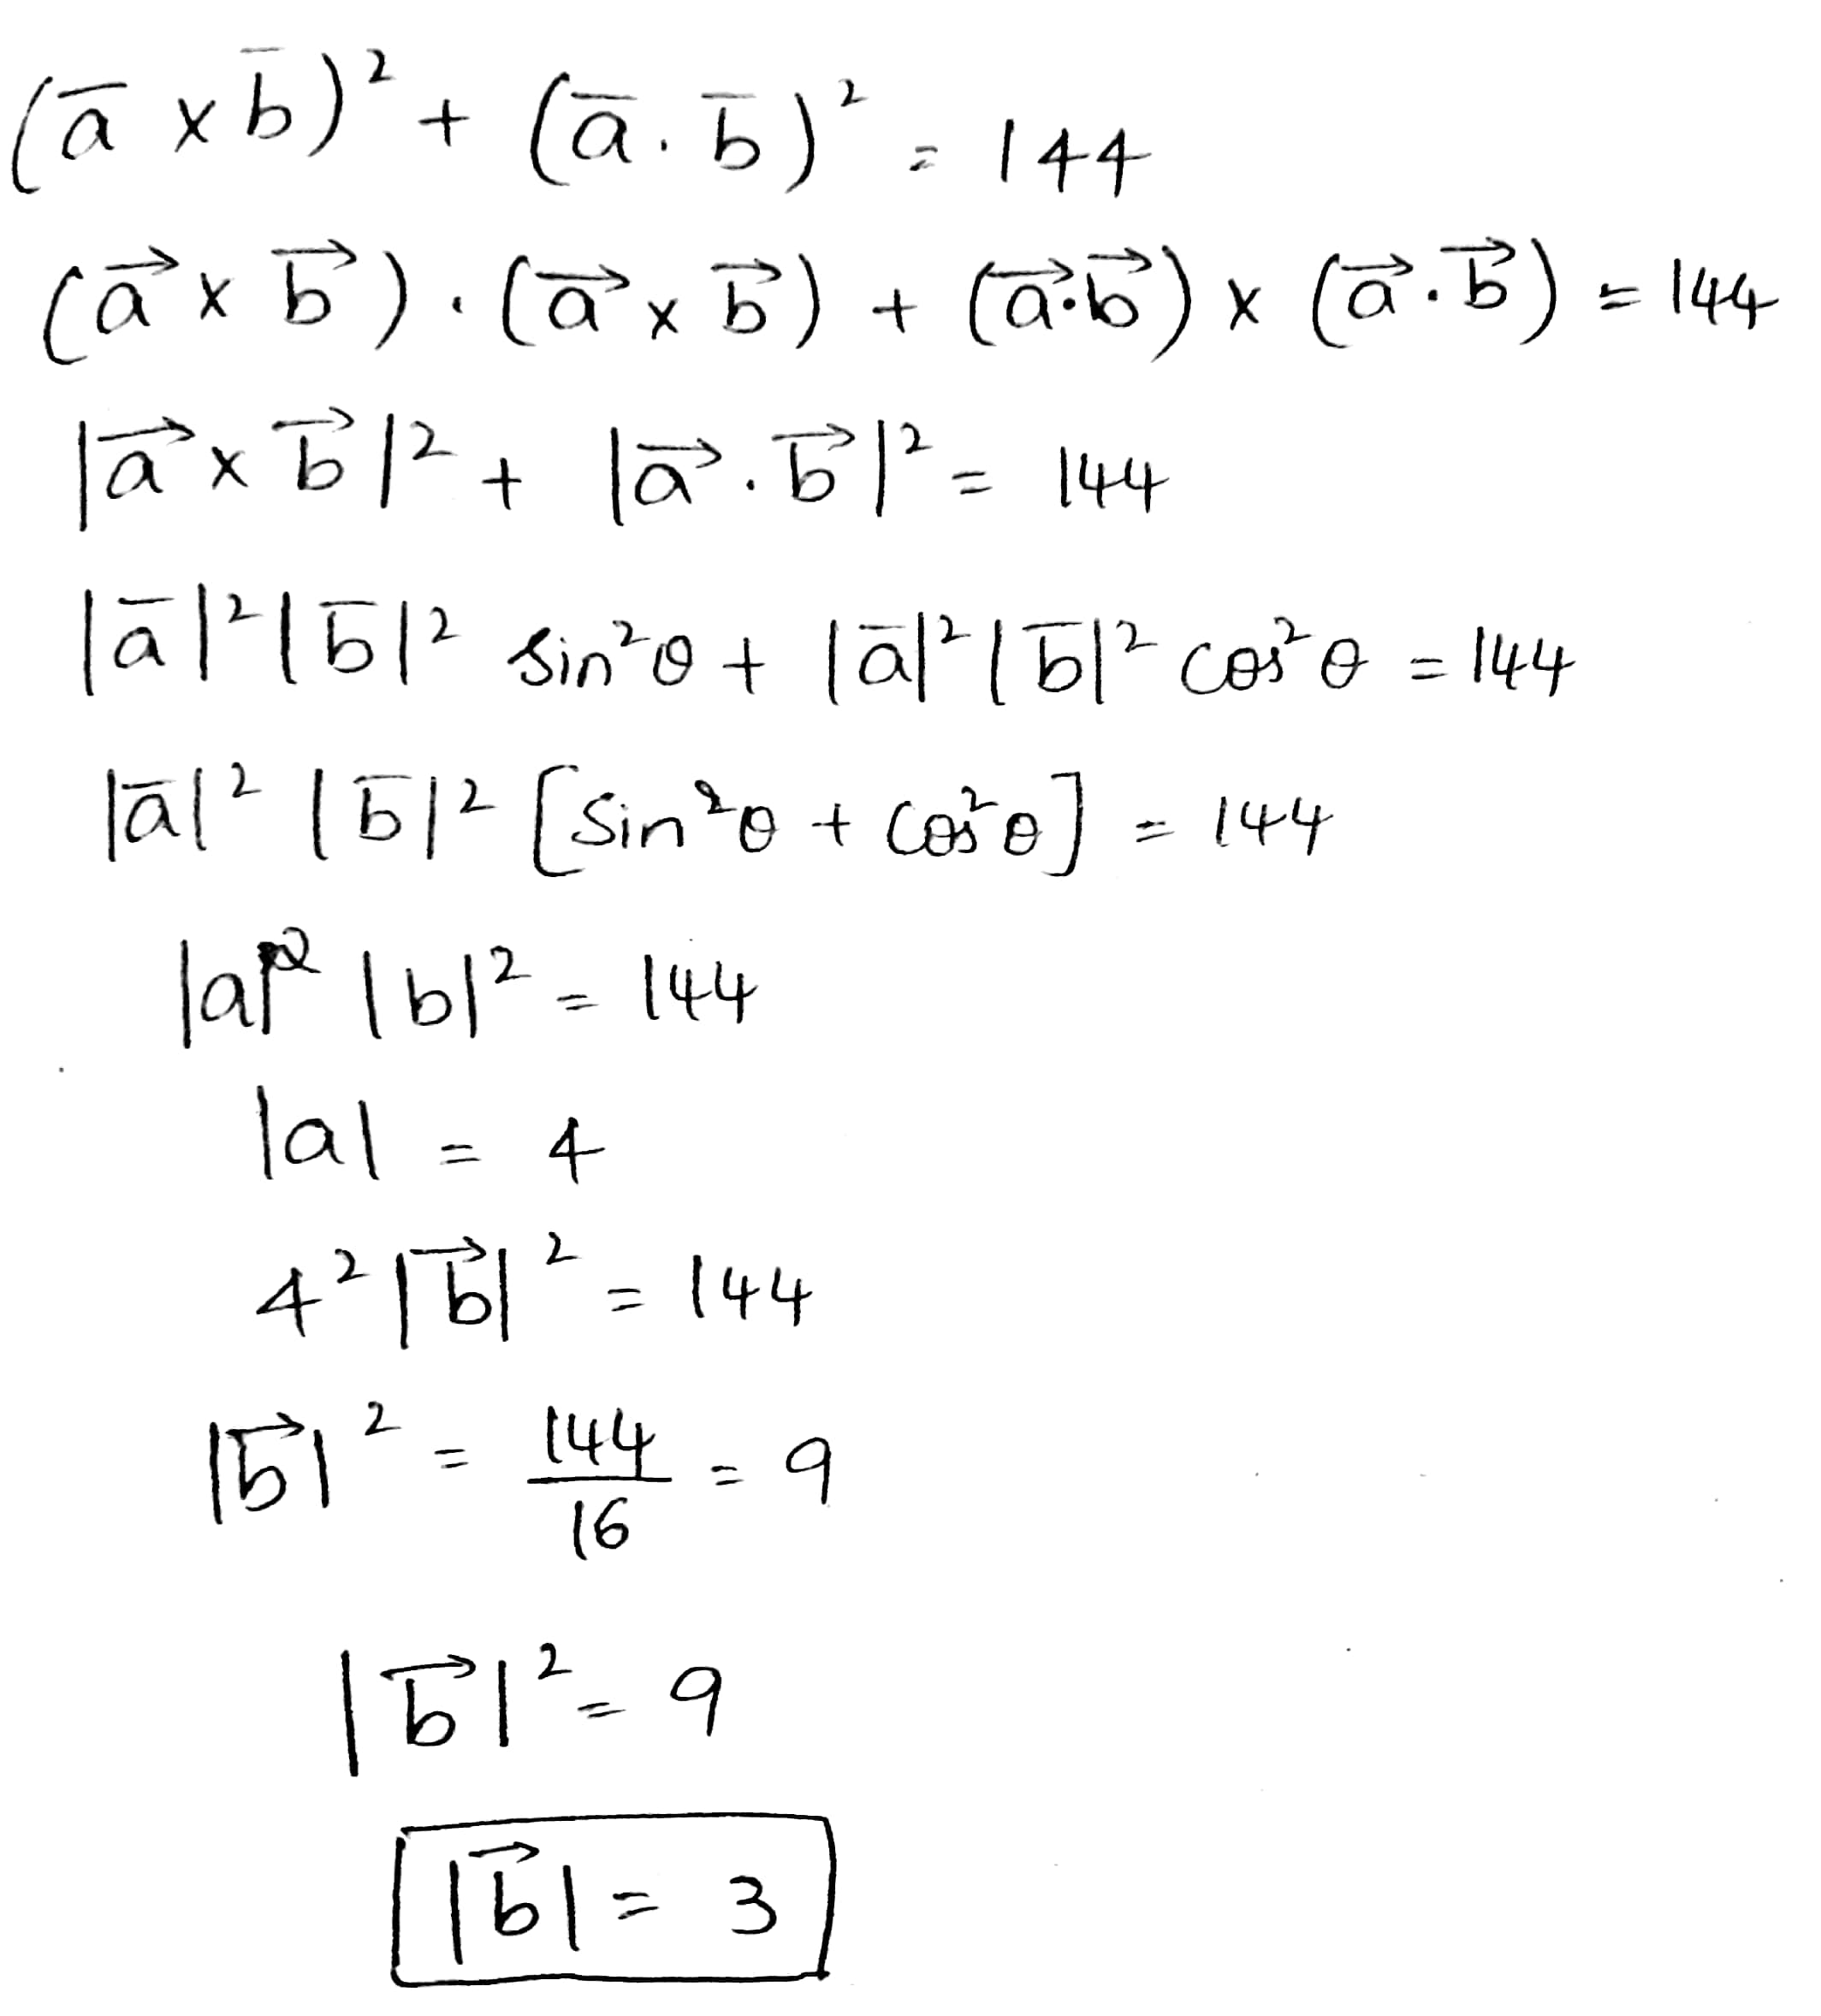 (a̅ × b̅)² + (a̅ . b̅)² = 144
(a⃗ × b⃗) . (a⃗ × b⃗) + (a⃗ . b⃗) × (a⃗ . b⃗) = 144
|a⃗ × b⃗|² + |a⃗ . b⃗|² = 144
|a̅|² |b̅|² sin²θ + |a̅|² |b̅|² cos²θ = 144
|a̅|² |b̅|² [sin²θ + cos²θ] = 144
|a|² |b|² = 144
|a| = 4
4² |b⃗|² = 144
|b⃗|² = 144/16 = 9
|b⃗|² = 9
|b⃗| = 3